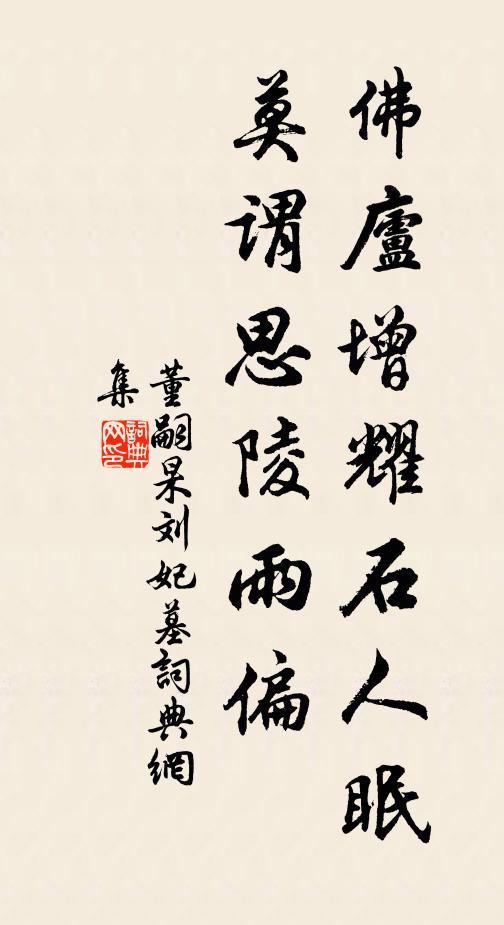 佛廬增耀石人眠
莫謂思陵雨偏
董嗣杲刘妃墓詞典網
集
詞典網印